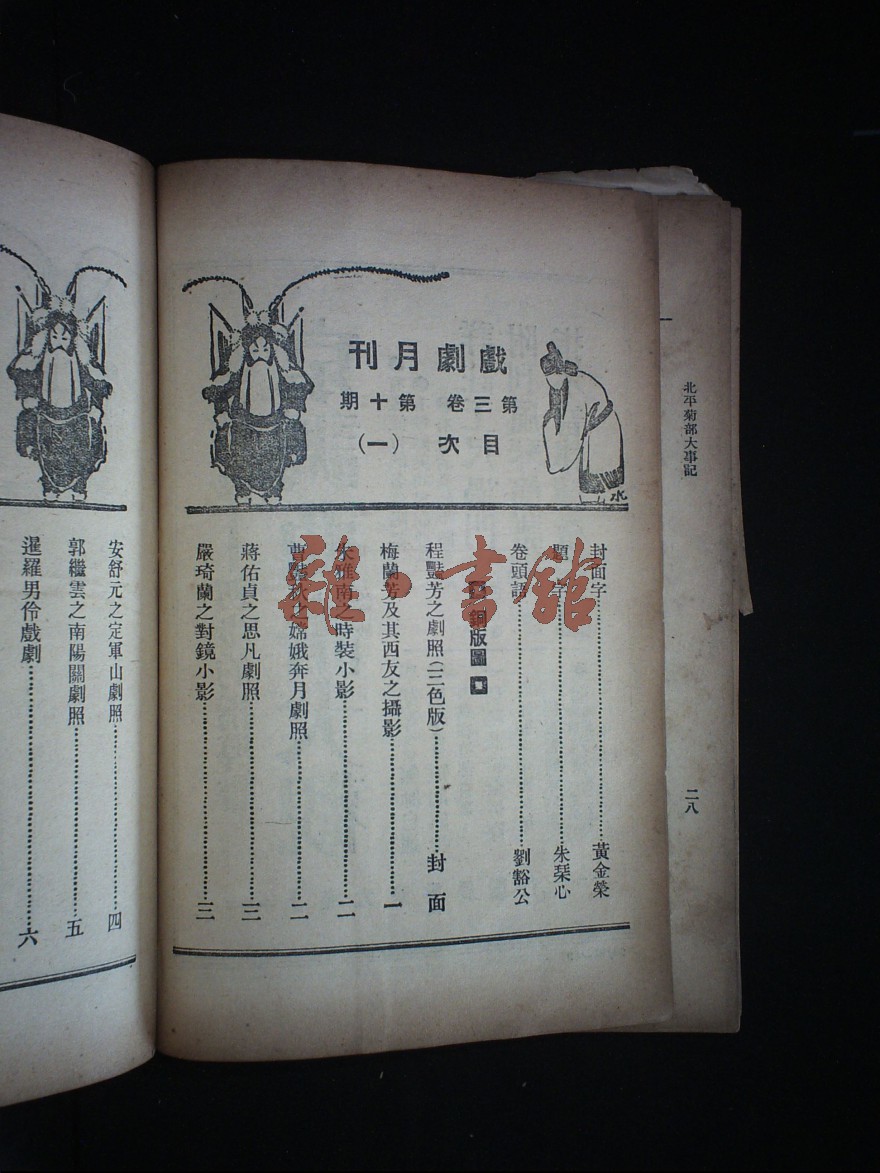 戲劇月刊
第三卷 第十期
目次（一）
封面字 黃金榮
題字 朱琹心
卷頭語 劉豁公
銅版圖
程豔芳之劇照（三色版） 封面
梅蘭芳及其西友之攝影 一
朱雅南之時裝小影 二
曹豔秋之嫦娥奔月劇照 二
蔣佑貞之思凡劇照 三
嚴琦蘭之對鏡小影 三
安舒元之定軍山劇照 四
郭繼雲之南陽關劇照 五
暹羅男伶戲劇 六
北平菊部大事記
二八
水
雜·書館